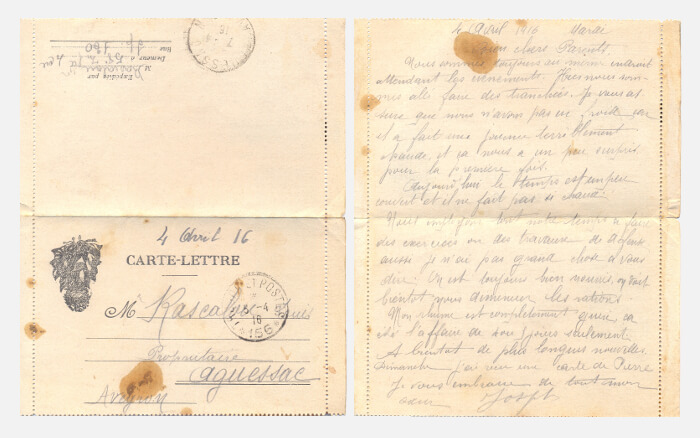 4 Avril 16
CARTE-LETTRE
M Rascalou Louis
Propriétaire
aguessac
Aveyron
Expédiée par
M
Demeurant
Rue
TRESOR ET POSTES
-4
16
*156*
4 Avril 1916 Mardi
Bien chers Parents
Nous sommes toujours au même endroit
attendant les évènements. Hier nous som-
mes allé faire des tranchées. Je vous as
sure que nous n'avons pas eu froid car
il a fait une journée terriblement
chaude, et ça nous a un peu surpris
pour la première fois.
Aujourd'hui le temps est un peu
couvert et il ne fait pas si chaud.
Nous employons tout notre temps a faire
des exercices ou des travaux de défense
aussi je n'ai pas grand chose à vous
dire. On est toujours bien nourris, on doit
bientôt nous diminuer les rations.
Mon rhume est complètement guéri ça
été l'affaire de jours seulement.
A bientôt de plus longues nouvelles.
Dimanche j'ai reçu une carte de Pierre
Je vous embrasse de tout mon
cœur Joseph